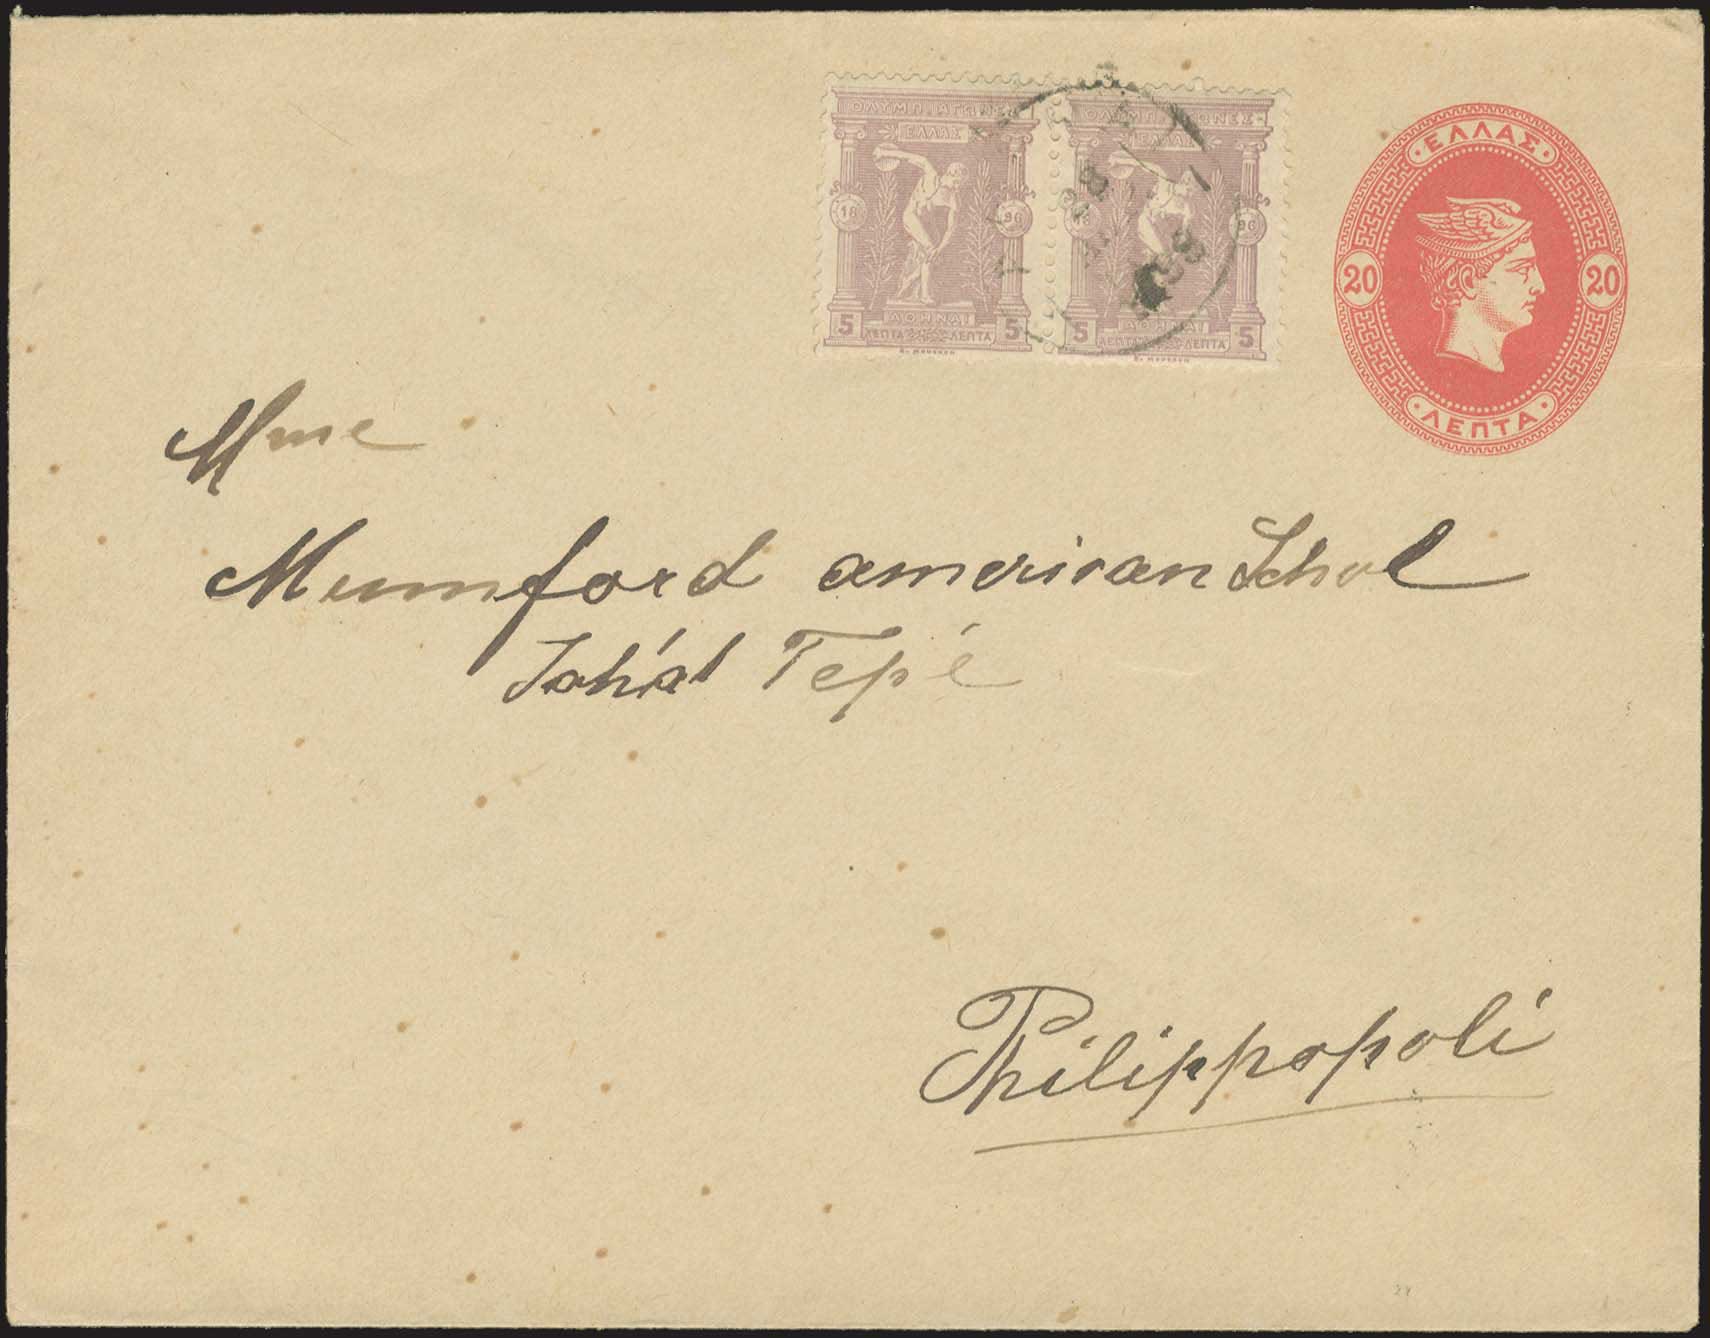 ΟΛΥΜΠ. ΑΓΩΝΕΣ ΟΛΥΜΠ. ΑΓΩΝΕΣ
ΕΛΛΑΣ ΕΛΛΑΣ
18 96 96
ΑΘΗΝΑΙ ΑΘΗΝΑΙ
5 ΛΕΠΤΑ ΛΕΠΤΑ 5 5 ΛΕΠΤΑ ΛΕΠΤΑ 5
·ΕΛΛΑΣ·
20 20
·ΛΕΠΤΑ·
Mme
Mumford american School
Sahat Tepé
Philippopoli